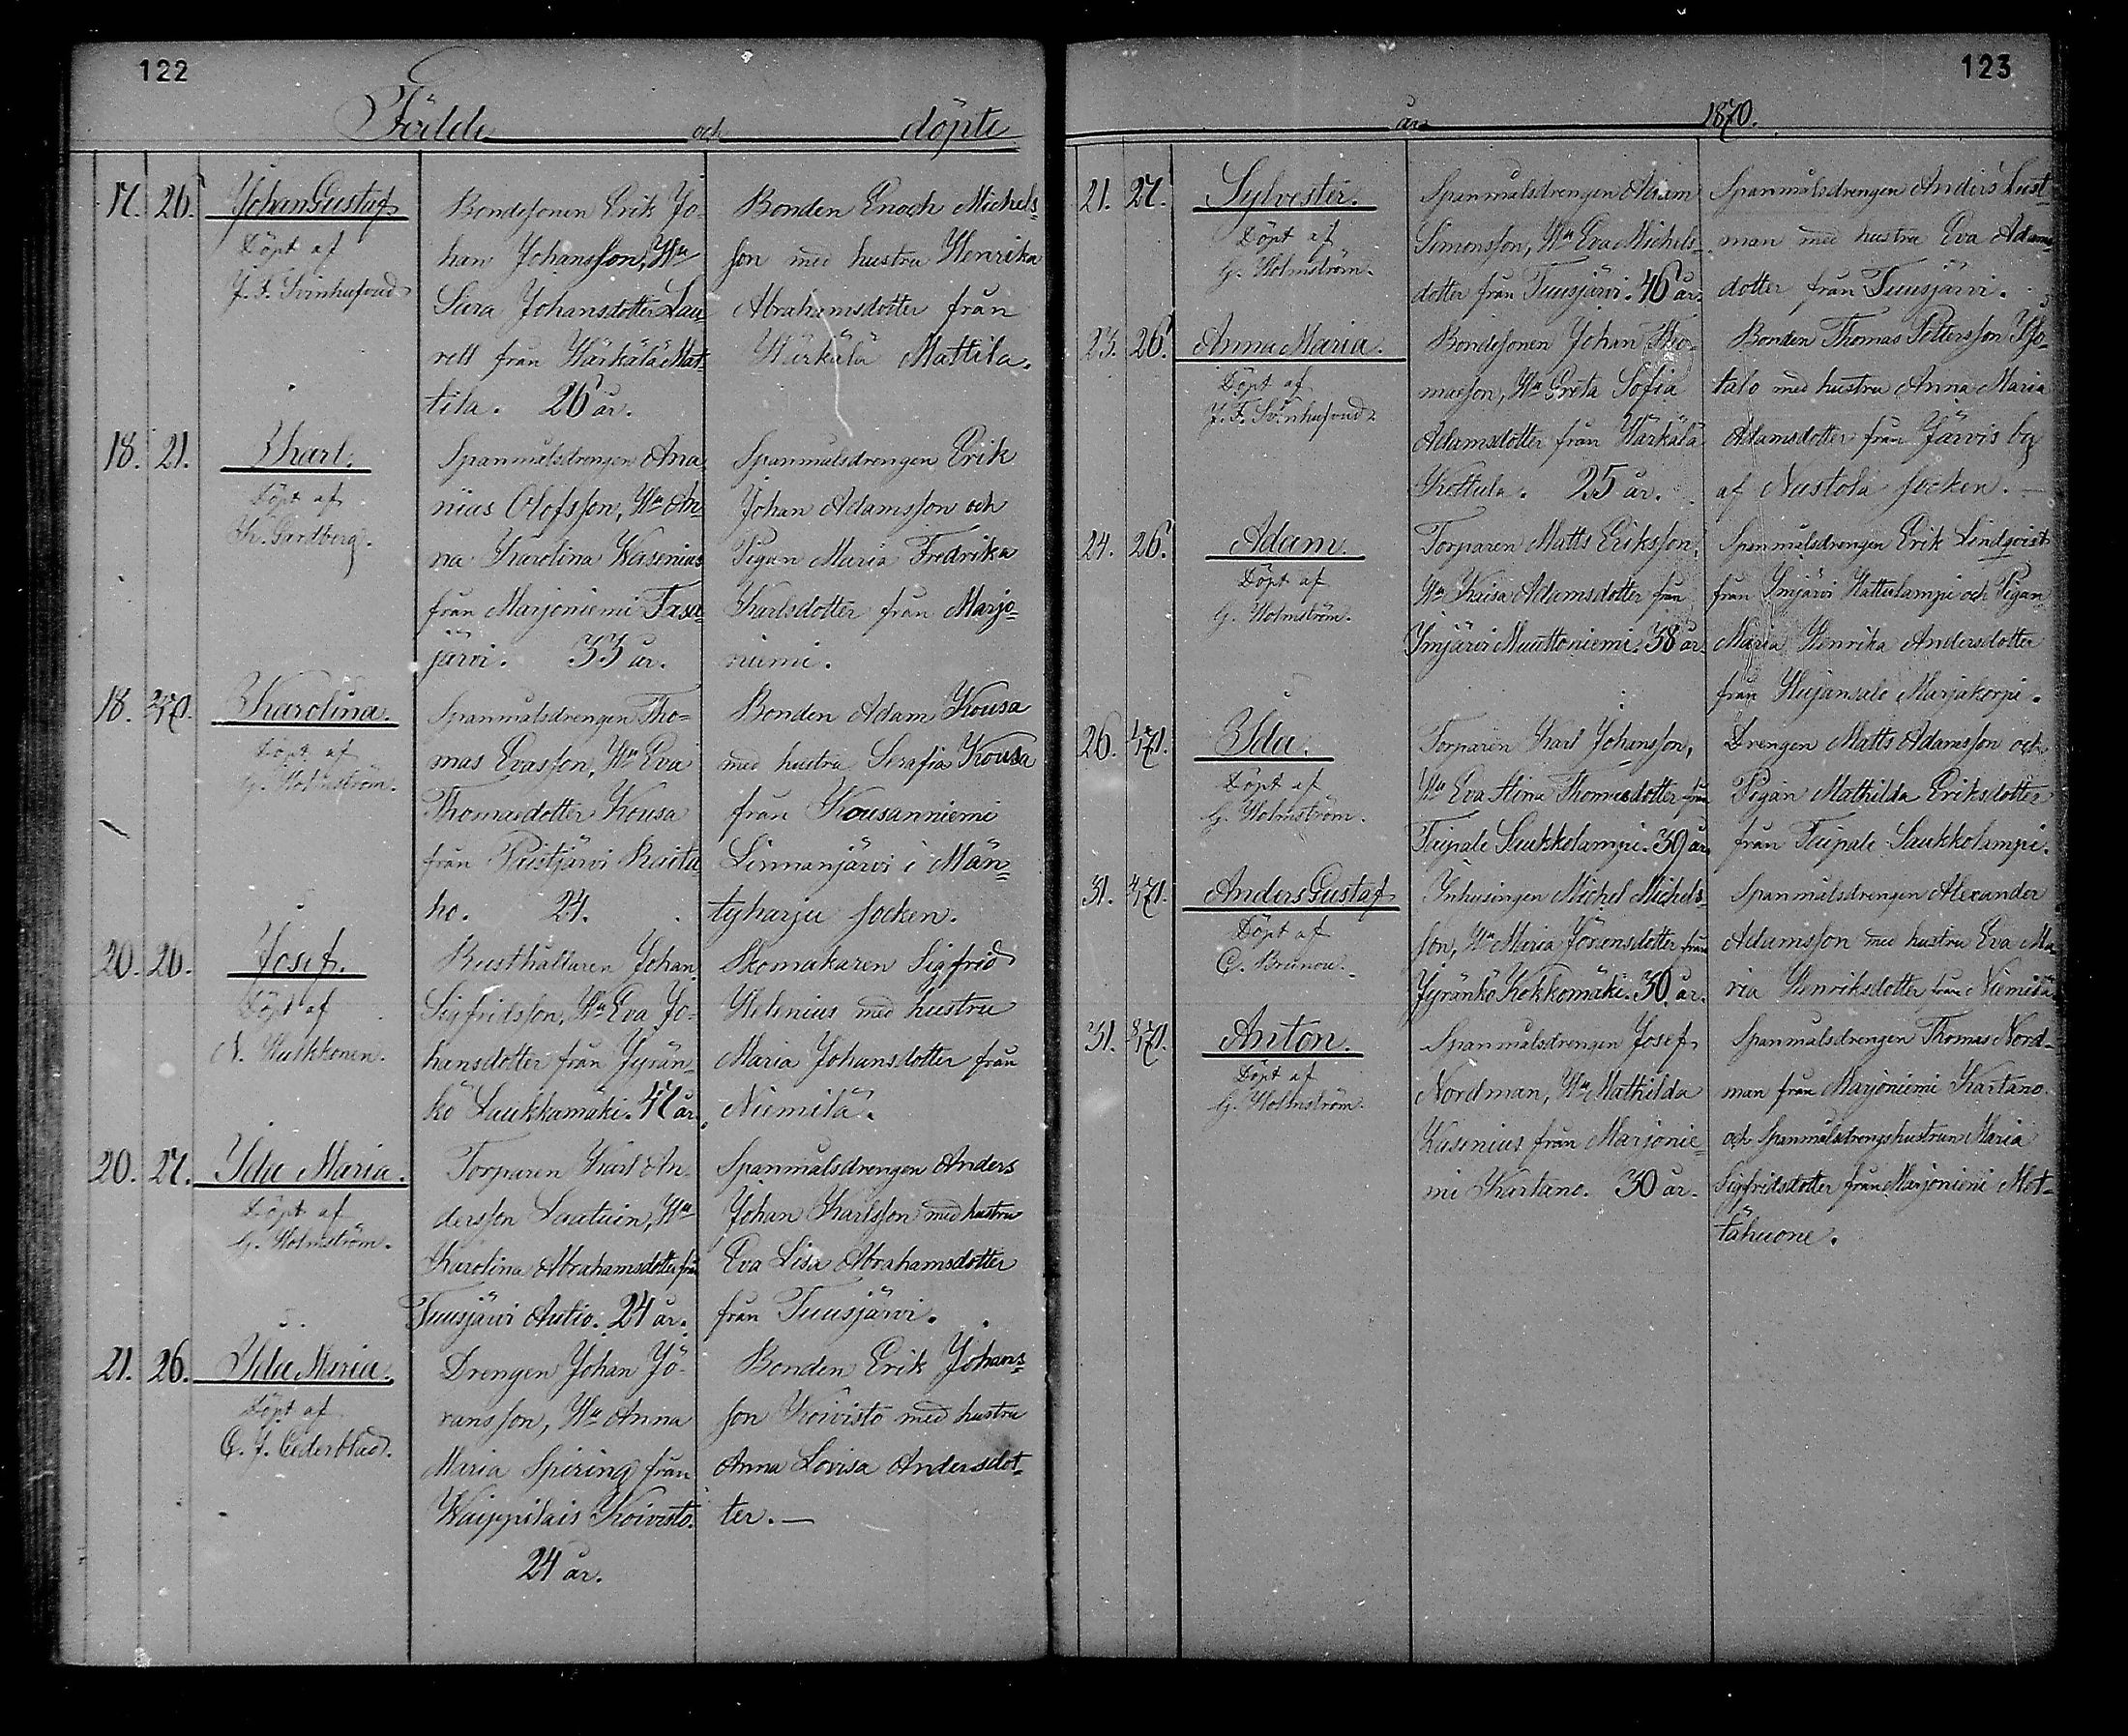 122
Födde och döpte
17. 26. Johan Gustaf
Döpt af
J. F. Svinhufvud
Bondesonen Erik Jo-
han Johansson, Hu
Sara Johansdotter Lau-
rell från Härkälä Mat-
tila. 26 år.
Bonden Enoch Michels-
son med hustru Henrika
Abrahamsdotter från
Härkälä Mattila.
18. 21. Karl.
Döpt af
Th. Gardberg.
Spanmålsdrengen Ana-
nias Olofsson, Hu An-
na Karolina Wasenius
från Marjoniemi
järvi. 33 år.
Spanmålsdrengen Erik
Johan Adamsson och
Pigan Maria Fredrika
Karlsdotter från Marjo-
niemi.
18. Karolina.
Döpt af
G. Holmström.
Spanmålsdrengen Tho-
mas Evasson, Hu Eva
Thomasdotter Kousa
från Raita
ho. 24.
Bonden Adam Kousa
med hustru Serafia Kousa
från Kousanniemi
Linnanjärvi i Män-
tyharju socken.
20. 26. Josef.
Döpt af
N. Kuikkonen.
Rusthållaren Johan
Sigfridsson, Hu Eva Jo-
hansdotter från Jyrän-
kö Laukkamäki. 47 år.
Skomakaren Sigfrid
Helenius med hustru
Maria Johansdotter från
Niemilä.
20. 27. Ida Maria.
Döpt af
G. Holmström.
Torparen Karl An-
dersson Lautuin, Hu
Karolina Abrahamsdotter från
Tuusjärvi Autio. 24 år.
Spanmålsdrengen Anders
Johan Karlsson med hustru
Eva Lisa Abrahamsdotter
från Tuusjärvi.
21. 26. Ida Maria.
Döpt af
C. J. Cederblad.
Drengen Johan Jö-
ransson, Hu Anna
Maria Spiring från
Waippilais Koivisto.
24 år.
Bonden Erik Johans-
son Koivisto med hustru
Anna Lovisa Andersdot-
ter.—
123
år 1870.
21. 27. Sylvester.
Döpt af
G. Holmström.
Spanmålsdrengen Adam
Simonsson, Hu Eva Michels-
dotter från Tuusjärvi. 46 år.
Spanmålsdrengen Anders Lust-
man med hustru Eva Adams-
dotter från Tuusjärvi.
23. 26. Anna Maria.
Döpt af
J. F. Svinhufvud.
Bondesonen Johan Tho-
masson, Hu Greta Sofia
Adamsdotter från Härkälä
Kottula. 25 år.
Bonden Thomas Pettersson
talo med hustru Anna Maria
Adamsdotter från Järvis by
af Nastola socken.—
24. 26. Adam.
Döpt af
G. Holmström.
Torparen Matts Eriksson,
Hu Kaisa Adamsdotter från
Imjärvi Muuttoniemi. 38 år.
Spanmålsdrengen Erik Lindqvist
från Imjärvi Hattulampi och Pigan
Maria Henrika Andersdotter
från Hujansalo Marjakorpi.
26. 1/71. Ida.
Döpt af
G. Holmström.
Torparen Karl Johansson,
Hu Eva Stina Thomasdotter från
Taipale Saukkolampi. 39 år.
Drengen Matts Adamsson och
Pigan Mathilda Eriksdotter
från Taipale Saukkolampi.
31. Anders Gustaf
Döpt af
C. Brunou.
Inhysingen Michel Michels-
son, Hu Maria Göransdotter från
Jyränkö Kokkomäki. 30 år.
Spanmålsdrengen Alexander
Adamsson med hustru Eva Ma-
ria Henriksdotter från Niemilä.
31. Anton.
Döpt af
G. Holmström.
Spanmålsdrengen Josef
Nordman, Hu Mathilda
Wasenius från Marjonie-
mi Kartano. 30 år.
Spanmålsdrengen Thomas Nord-
man från Marjoniemi Kartano
och Spanmålsdrengshustrun Maria
Sigfridsdotter från Marjoniemi Met-
tähuone.